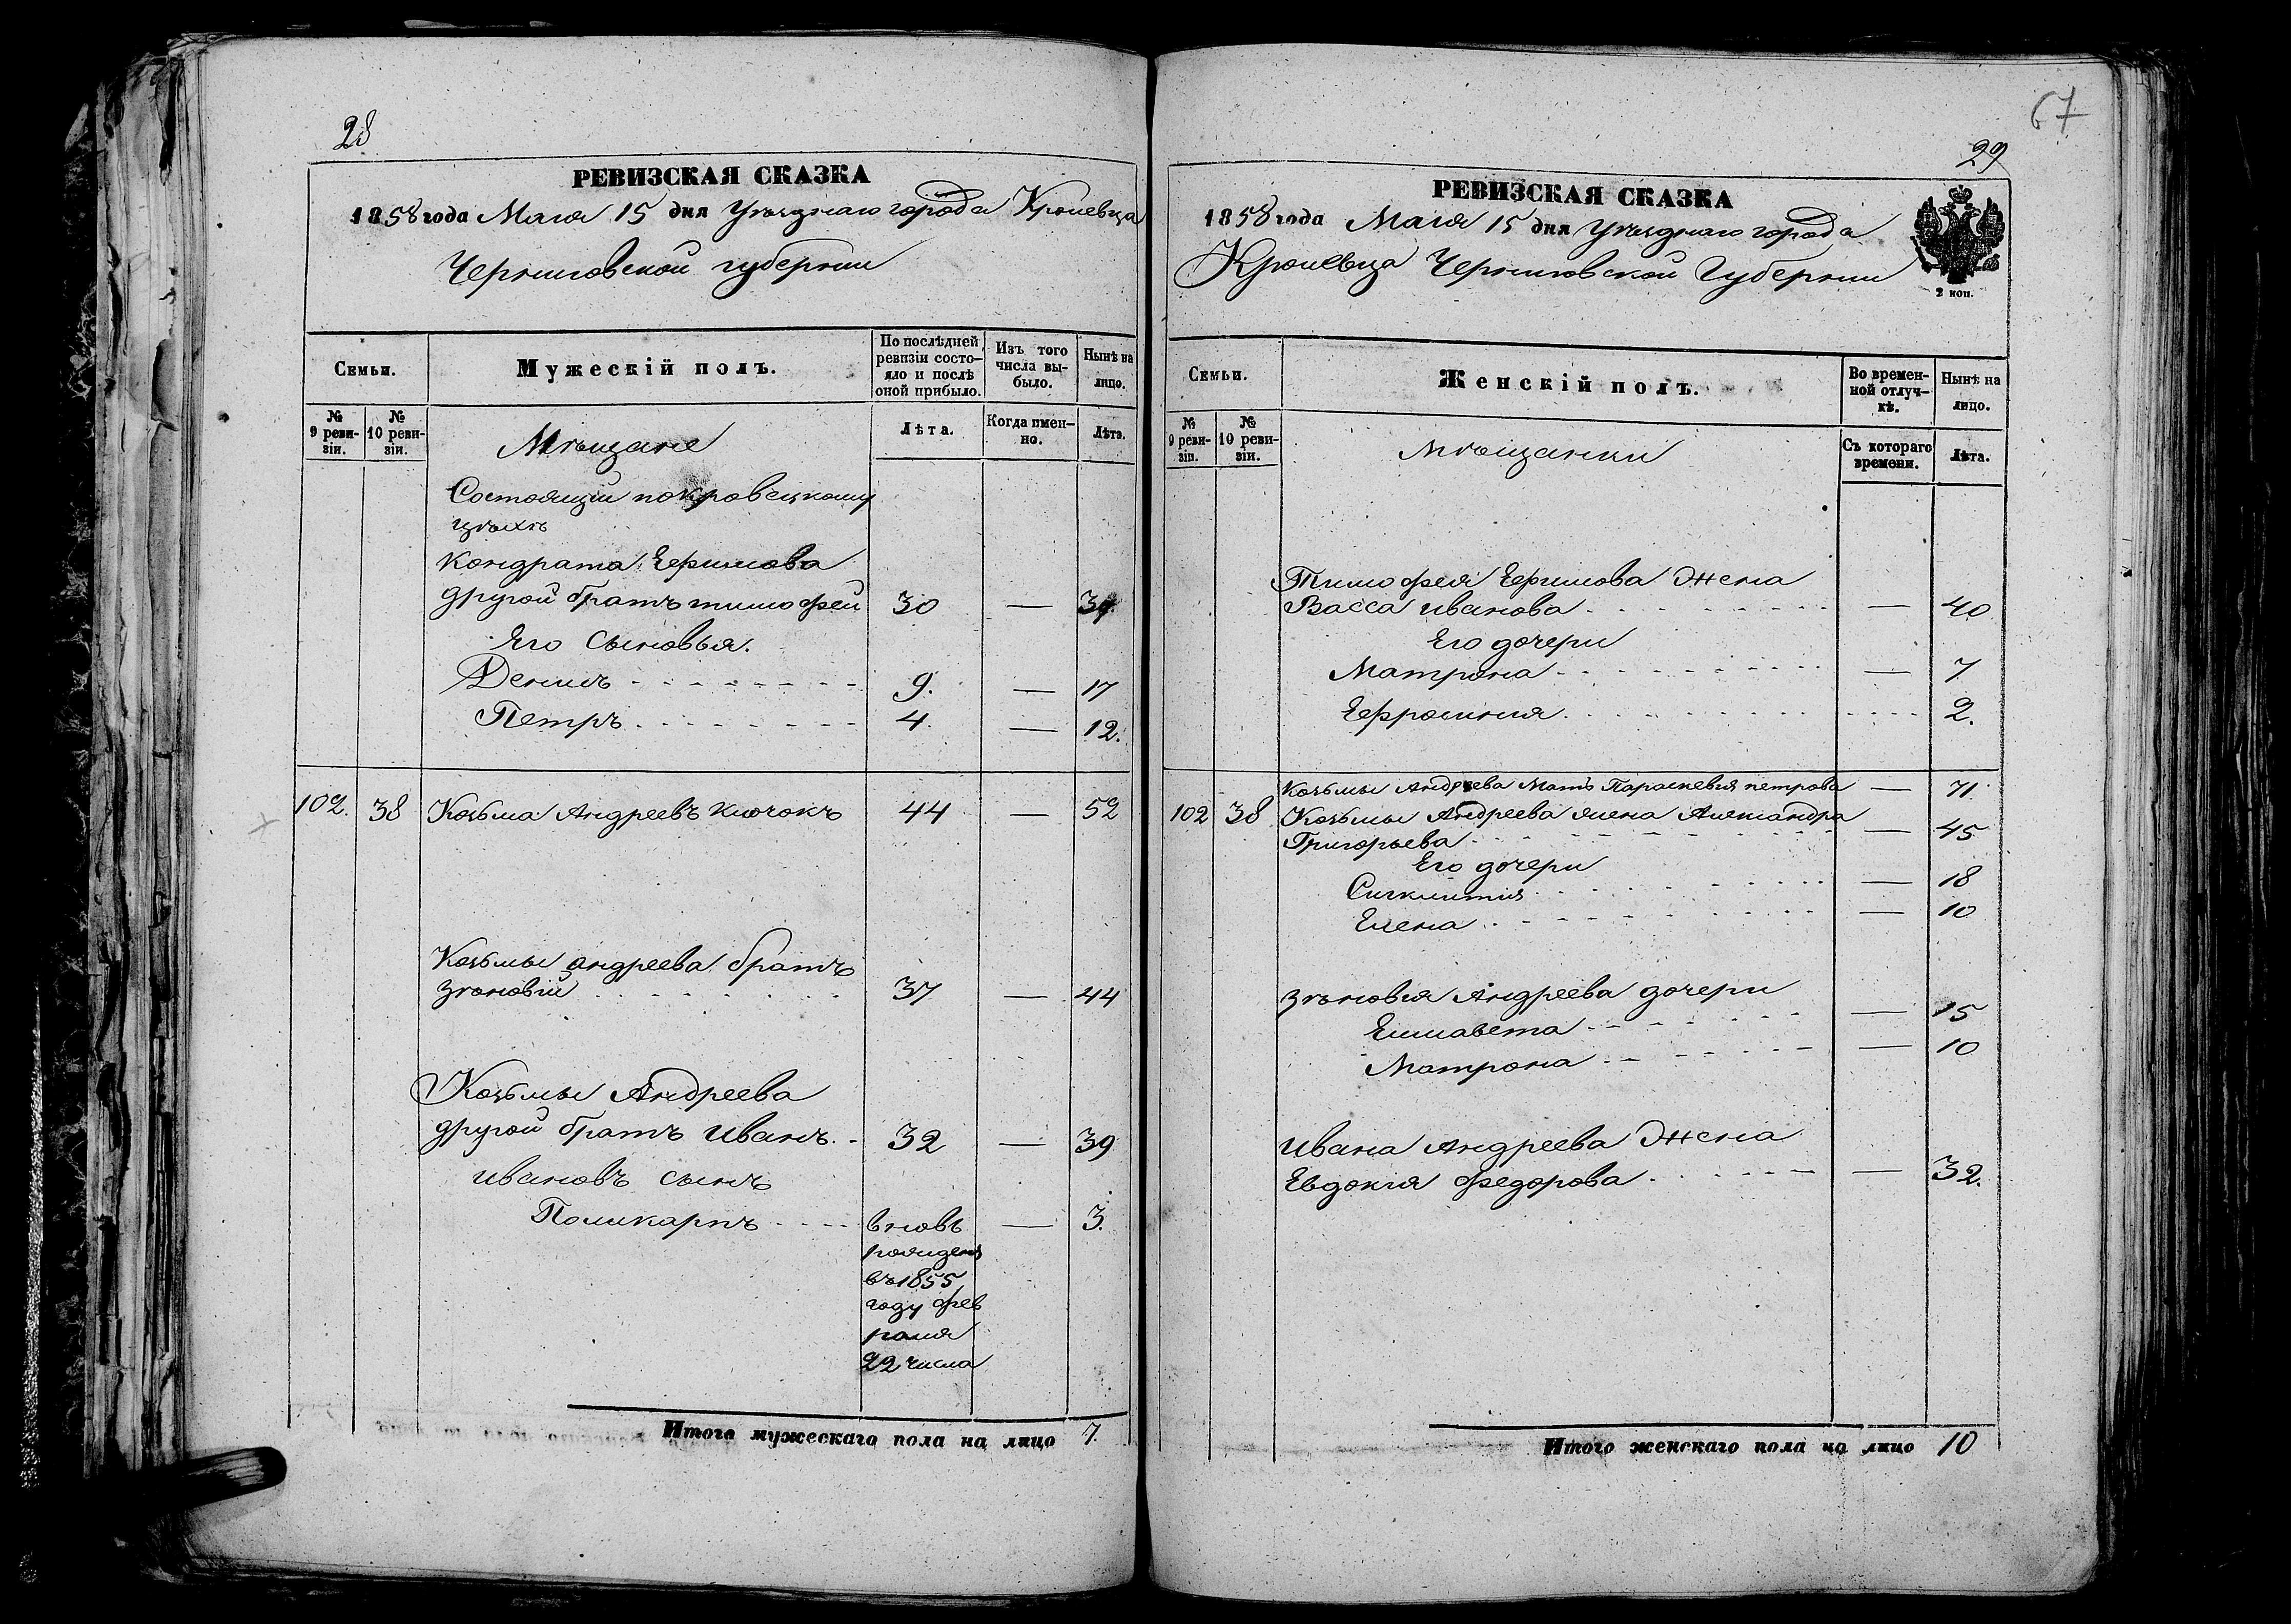 28
РЕВИЗСКАЯ СКАЗКА
1858 года Мая 15 дня Уѣзднаго города Кролевца
Черниговской губерніи
Семьи.
Мужескій полъ.
По послѣдней ревизіи состояло и послѣ оной прибыло.
Изъ того числа выбыло.
Нынѣ на лицо.
№ 9 ревизіи.
№ 10 ревизіи.
Мѣщане
Лѣта.
Когда именно.
Лѣта.
Состоящіи покровецкому
цѣхѣ
Кондрата Ефимова
другой братъ тимофей 30 — 39
Его сыновья.
Денисъ 9. — 17
Петръ 4. — 12.
102. 38 Козьма Андреевъ Ключокъ 44 — 52
Козьмы андреева братъ
зѣновій 37 — 44
Козьмы Андреева
другой братъ Иванъ 32 — 39
ивановъ сынъ
Поликарпъ вновь — 3.
рожденъ
въ 1855
году фев
раля
22 числа
Итого мужескаго пола на лицо 7.
67
29
РЕВИЗСКАЯ СКАЗКА
1858 года Мая 15 дня Уѣзднаго города
Кролевца Черниговской Губерніи
2 коп.
Семьи.
Женскій полъ.
Во временной отлучкѣ.
Нынѣ на лицо.
№ 9 ревизіи.
№ 10 ревизіи.
мѣщанки
Съ котораго времени.
Лѣта.
Тимофея Ефимова Жена
Васса иванова — 40
Его дочери
Матрона — 7
Ефросинія 2.
Козьмы Андреева Мать Параскевия петрова — 71.
102 38 Козьмы Андреева жена Александра
Григорьева — 45
Его дочери
— 18
Елена — 10
зѣновия Андреева дочери
Елисавета — 15
Матрона — 10
Ивана Андреева Жена
Евдокія Федорова — 32.
Итого женскаго пола на лицо 10